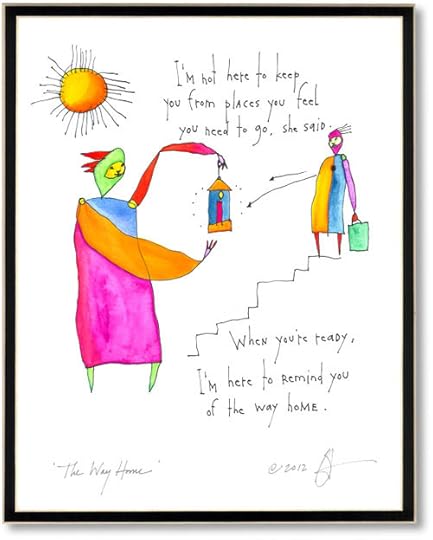 I'm not here to keep
you from places you feel
you need to go, she said.
When you're ready,
I'm here to remind you
of the way home.
"The Way Home"
© 2012